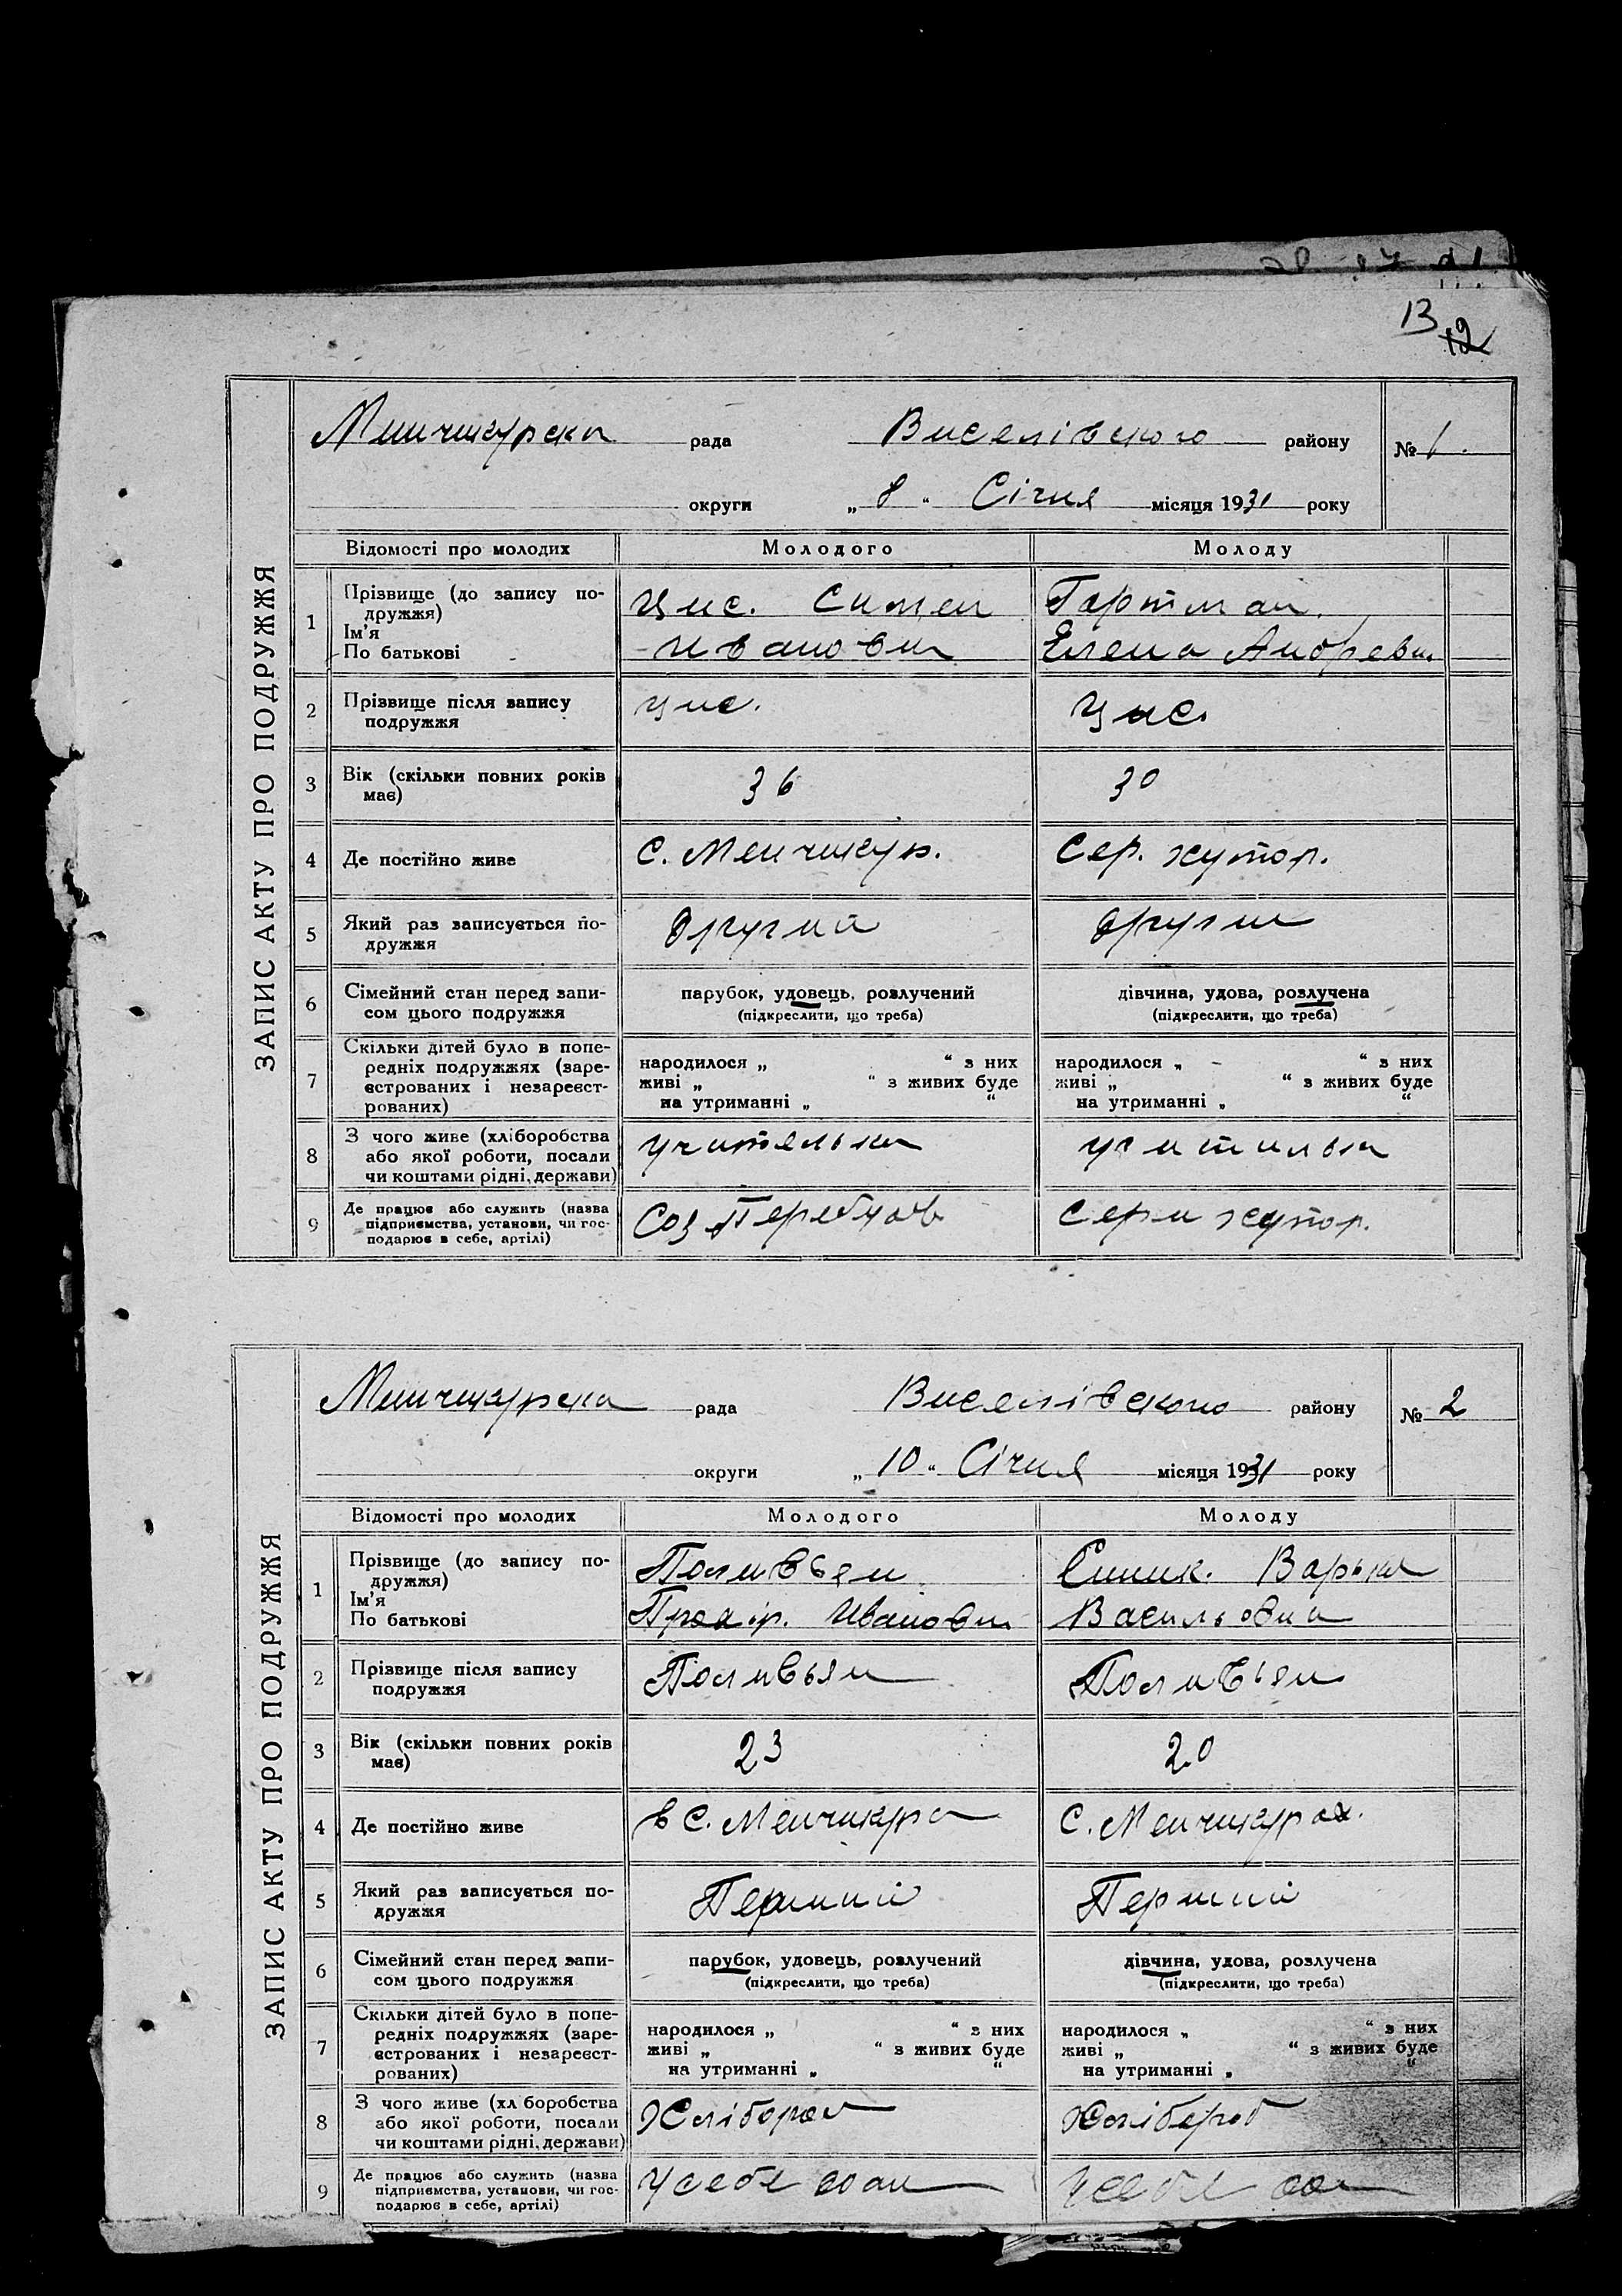 13
12
ЗАПИС АКТУ ПРО ПОДРУЖЖЯ
Минчикурска рада Виселівского району № 1.
округи „ 8 “ Січня місяця 1931 року
Відомості про молодих Молодого Молоду
1 Прізвище (до запису по-
дружжя)
Ім’я
По батькові
Цис. Симен
Иванович
Гартман.
Елена Андревн.
2 Прізвище після запису
подружжя
Цис.
Цис.
3 Вік (скільки повних років
має)
36
30
4 Де постійно живе
с. Менчикур.
Сер. хутор.
5 Який раз записується по-
дружжя
другий
други
6 Сімейний стан перед запи-
сом цього подружжя
парубок, удовець, розлучений
(підкреслити, що треба)
дівчина, удова, розлучена
(підкреслити, що треба)
7 Скільки дітей було в попе-
редніх подружжях (заре-
єстрованих і незареєст-
рованих)
народилося „ “ з них
живі „ “ з живих буде
на утриманні „ “
народилося „ - “ з них
живі „ “ з живих буде
на утриманні „ “
8 З чого живе (хліборобства
або якої роботи, посади
чи коштами рідні, держави)
учителька
9 Де працює або служить (назва
підприємства, установи, чи гос-
подарює в себе, артілі)
Соз
хутор.
ЗАПИС АКТУ ПРО ПОДРУЖЖЯ
Минчикурска рада Виселівского району № 2
округи „ 10 “ Січня місяця 1931 року
Відомості про молодих Молодого Молоду
1 Прізвище (до запису по-
дружжя)
Ім’я
По батькові
Поливьян
Иванович
Синик. Варька
Васильовна
2 Прізвище після запису
подружжя
Поливьян
Поливьян
3 Вік (скільки повних років
має)
23
20
4 Де постійно живе
в с. Менчикура
с. Менчикурах.
5 Який раз записується по-
дружжя
Перший
Перший
6 Сімейний стан перед запи-
сом цього подружжя
парубок, удовець, розлучений
(підкреслити, що треба)
дівчина, удова, розлучена
(підкреслити, що треба)
7 Скільки дітей було в попе-
редніх подружжях (заре-
єстрованих і незареєст-
рованих)
народилося „ “ з них
живі „ “ з живих буде
на утриманні „ “
народилося „ “ з них
живі „ “ з живих буде
на утриманні „ “
8 З чого живе (хл боробства
або якої роботи, посади
чи коштами рідні, держави)
Хлібороб
9 Де працює або служить (назва
підприємства, установи, чи гос-
подарює в себе, артілі)
У себе
У себе